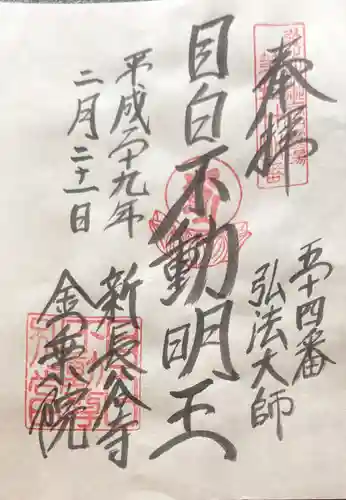 奉拝
五十四番
弘法大師
目白不動明王
平成二十九年
二月二十一日
新長谷寺
金乗院